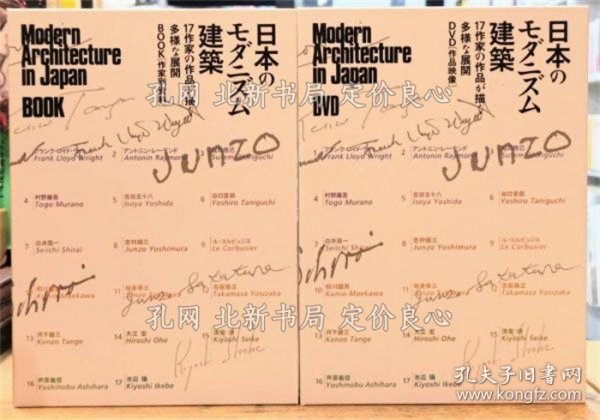 Modern
Architecture
in Japan
BOOK
日本の
モダニズム
建築
17作家の作品が描く
多様な展開
BOOK 作家別資料
JUNZO
1
フランク・ロイド・ライト
Frank Lloyd Wright
2
アントニン・レーモンド
Antonin Raymond
3
4
村野藤吾
Togo Murano
5
吉田五十八
Isoya Yoshida
6
谷口吉郎
Yoshiro Taniguchi
7
白井晟一
Seiichi Shirai
8
吉村順三
Junzo Yoshimura
9
ル・コルビュジエ
Le Corbusier
10
前川國男
Kunio Maekawa
11
坂倉準三
12
吉阪隆正
Takamasa Yosizaka
13
丹下健三
Kenzo Tange
14
大江 宏
Hiroshi Ohe
15
清家 清
Kiyoshi Seike
16
芦原義信
Yoshinobu Ashihara
17
池辺 陽
Kiyoshi Ikebe
Modern
Architecture
in Japan
DVD
日本の
モダニズム
建築
17作家の作品が描く
多様な展開
DVD 作品映像
JUNZO
フランク・ロイド・ライト
Frank Lloyd Wright
2
アントニン・レーモンド
Antonin Raymond
3
4
村野藤吾
Togo Murano
5
吉田五十八
Isoya Yoshida
6
谷口吉郎
Yoshiro Taniguchi
7
白井晟一
Seiichi Shirai
8
吉村順三
Junzo Yoshimura
9
ル・コルビュジエ
Le Corbusier
10
前川國男
Kunio Maekawa
11
坂倉準三
12
吉阪隆正
Takamasa Yosizaka
13
丹下健三
Kenzo Tange
14
大江 宏
Hiroshi Ohe
15
清家 清
Kiyoshi Seike
16
芦原義信
Yoshinobu Ashihara
17
池辺 陽
Kiyoshi Ikebe
孔网 北新书局 定价良心
孔网 北新书局 定价良心
孔网 北新书局 定价良心
孔夫子旧书网
www.kongfz.com